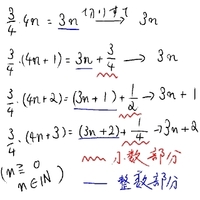 3/4・4n = 3n 切りすて→ 3n
3/4・(4n+1) = 3n + 3/4 → 3n
3/4・(4n+2) = (3n+1) + 1/2 → 3n+1
3/4・(4n+3) = (3n+2) + 1/4 → 3n+2
(n ≧ 0
n∈ℕ)
小数部分
整数部分